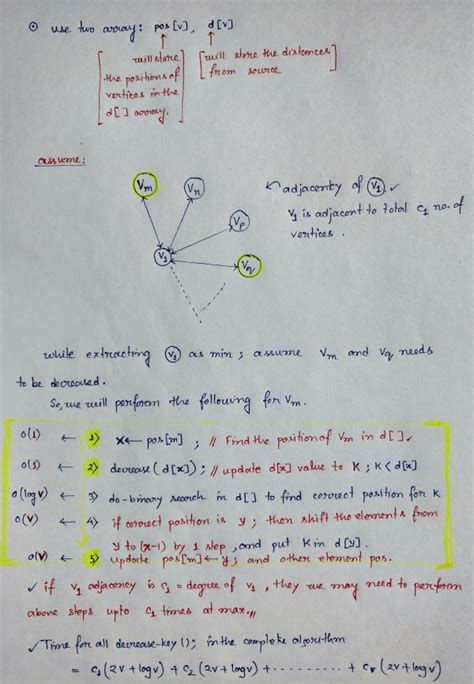 ⊙ use two array: pos[v], d[v]
[will store the positions of vertices in the d[] array.]
[will store the distances from source]
assume:
Vm
Vn
Vp
V1
Vq
adjacenty of V1 ✓
V1 is adjacent to total c1 no. of
vertices.
while extracting V1 as min; assume Vm and Vq needs
to be decreased.
So, we will perform the following for Vm.
O(1) ← 1) x ← pos[m]; // Find the position of Vm in d[].
O(1) ← 2) decrease(d[x]); // update d[x] value to K; K<d[x]
O(log V) ← 3) do-binary search in d[] to find correct position for K
O(V) ← 4) if correct position is y; then shift the elements from
y to (x-1) by 1 step, and put K in d[y].
O(V) ← 5) update pos[m] ← y; and other element pos.
✓ if V1 adjacency is c1 = degree of V1, they we may need to perform
above steps upto c1 times at max.//
✓ Time for all decrease-key(); in the complete algorithm
= c1(2V+logV) + c2(2V+logV) + .......... + cv(2V+logV)